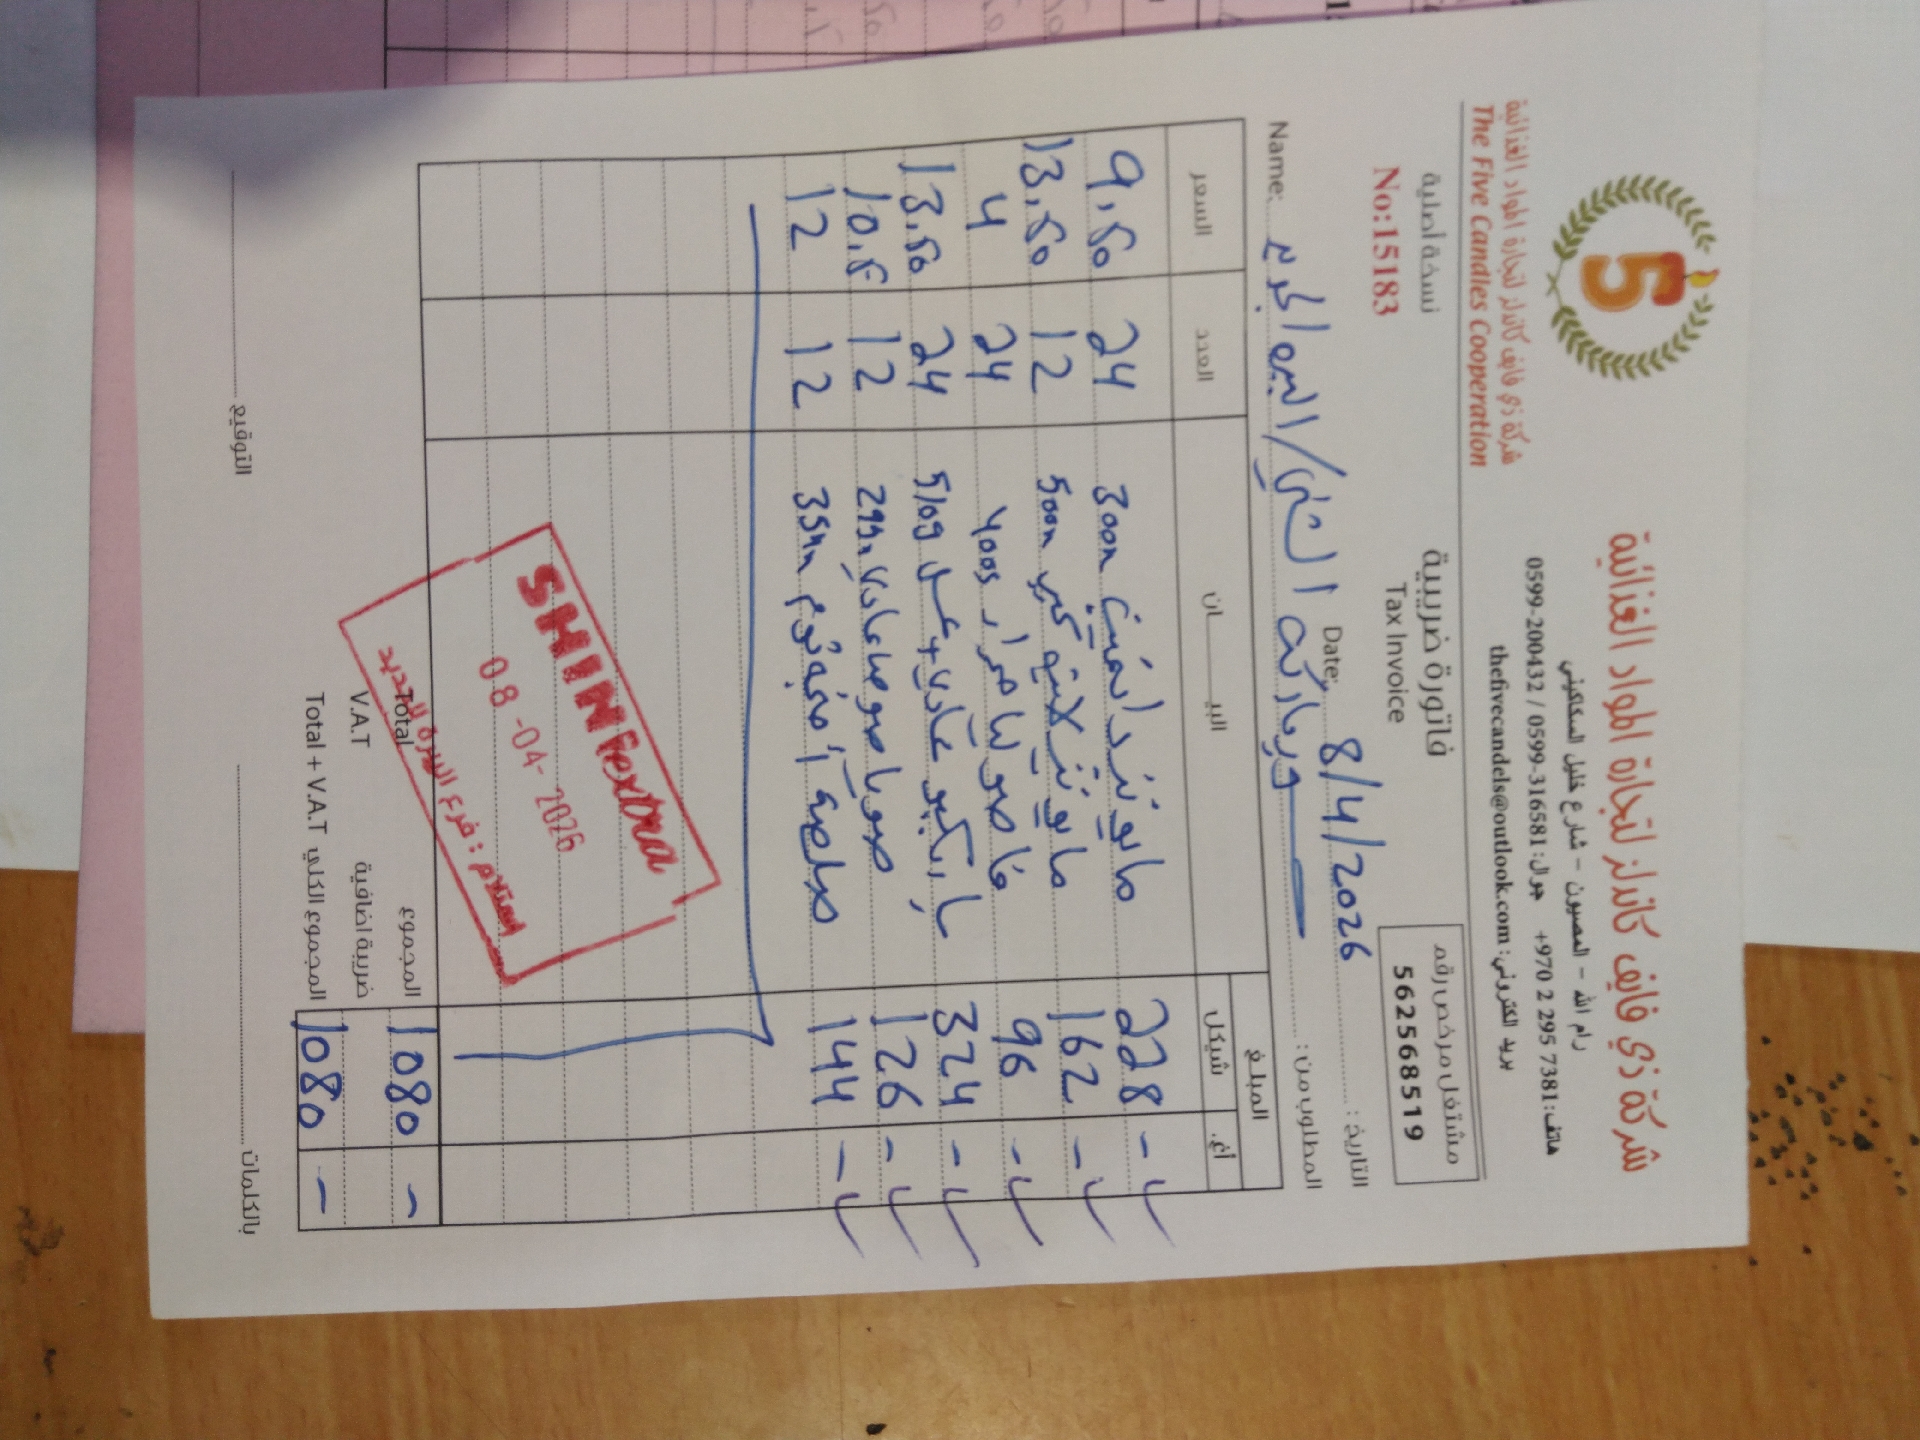 شركة ذي فايف كاندلز لتجارة المواد الغذائية
رام الله - المصيون - شارع خليل السكاكيني
هاتف: 7381 295 2 970+ جوال: 0599-316581 / 0599-200432
بريد الكتروني: thefivecandels@outlook.com
5
شركة ذي فايف كاندلز لتجارة المواد الغذائية
The Five Candles Cooperation
مشتغل مرخص رقم
562568519
فاتورة ضريبية
Tax Invoice
نسخة أصلية
No:15183
التاريخ: 8/4/2026 Date:
المطلوب من: وبركاته الشني / البيرة Name:
المبلغ البيــــــان العدد السعر
أغ. شيكل
- 228 مايونيز دايت 300m 24 9,50
- 162 مايونيز لايت كبير 500m 12 13,50
- 96 فاصوليا حمراء 400g 24 4
- 324 باربكيو عادي + عسل 510g 24 13,50
- 126 صويا صوص عادي 299m 12 10,5
- 144 صلصة 354m 12 12
SHINI extra
08-04-2026
إستلام: فرع البيرة الجديد
- 1080 المجموع Total
ضريبة اضافية V.A.T
- 1080 المجموع الكلي Total + V.A.T
بالكلمات
التوقيع